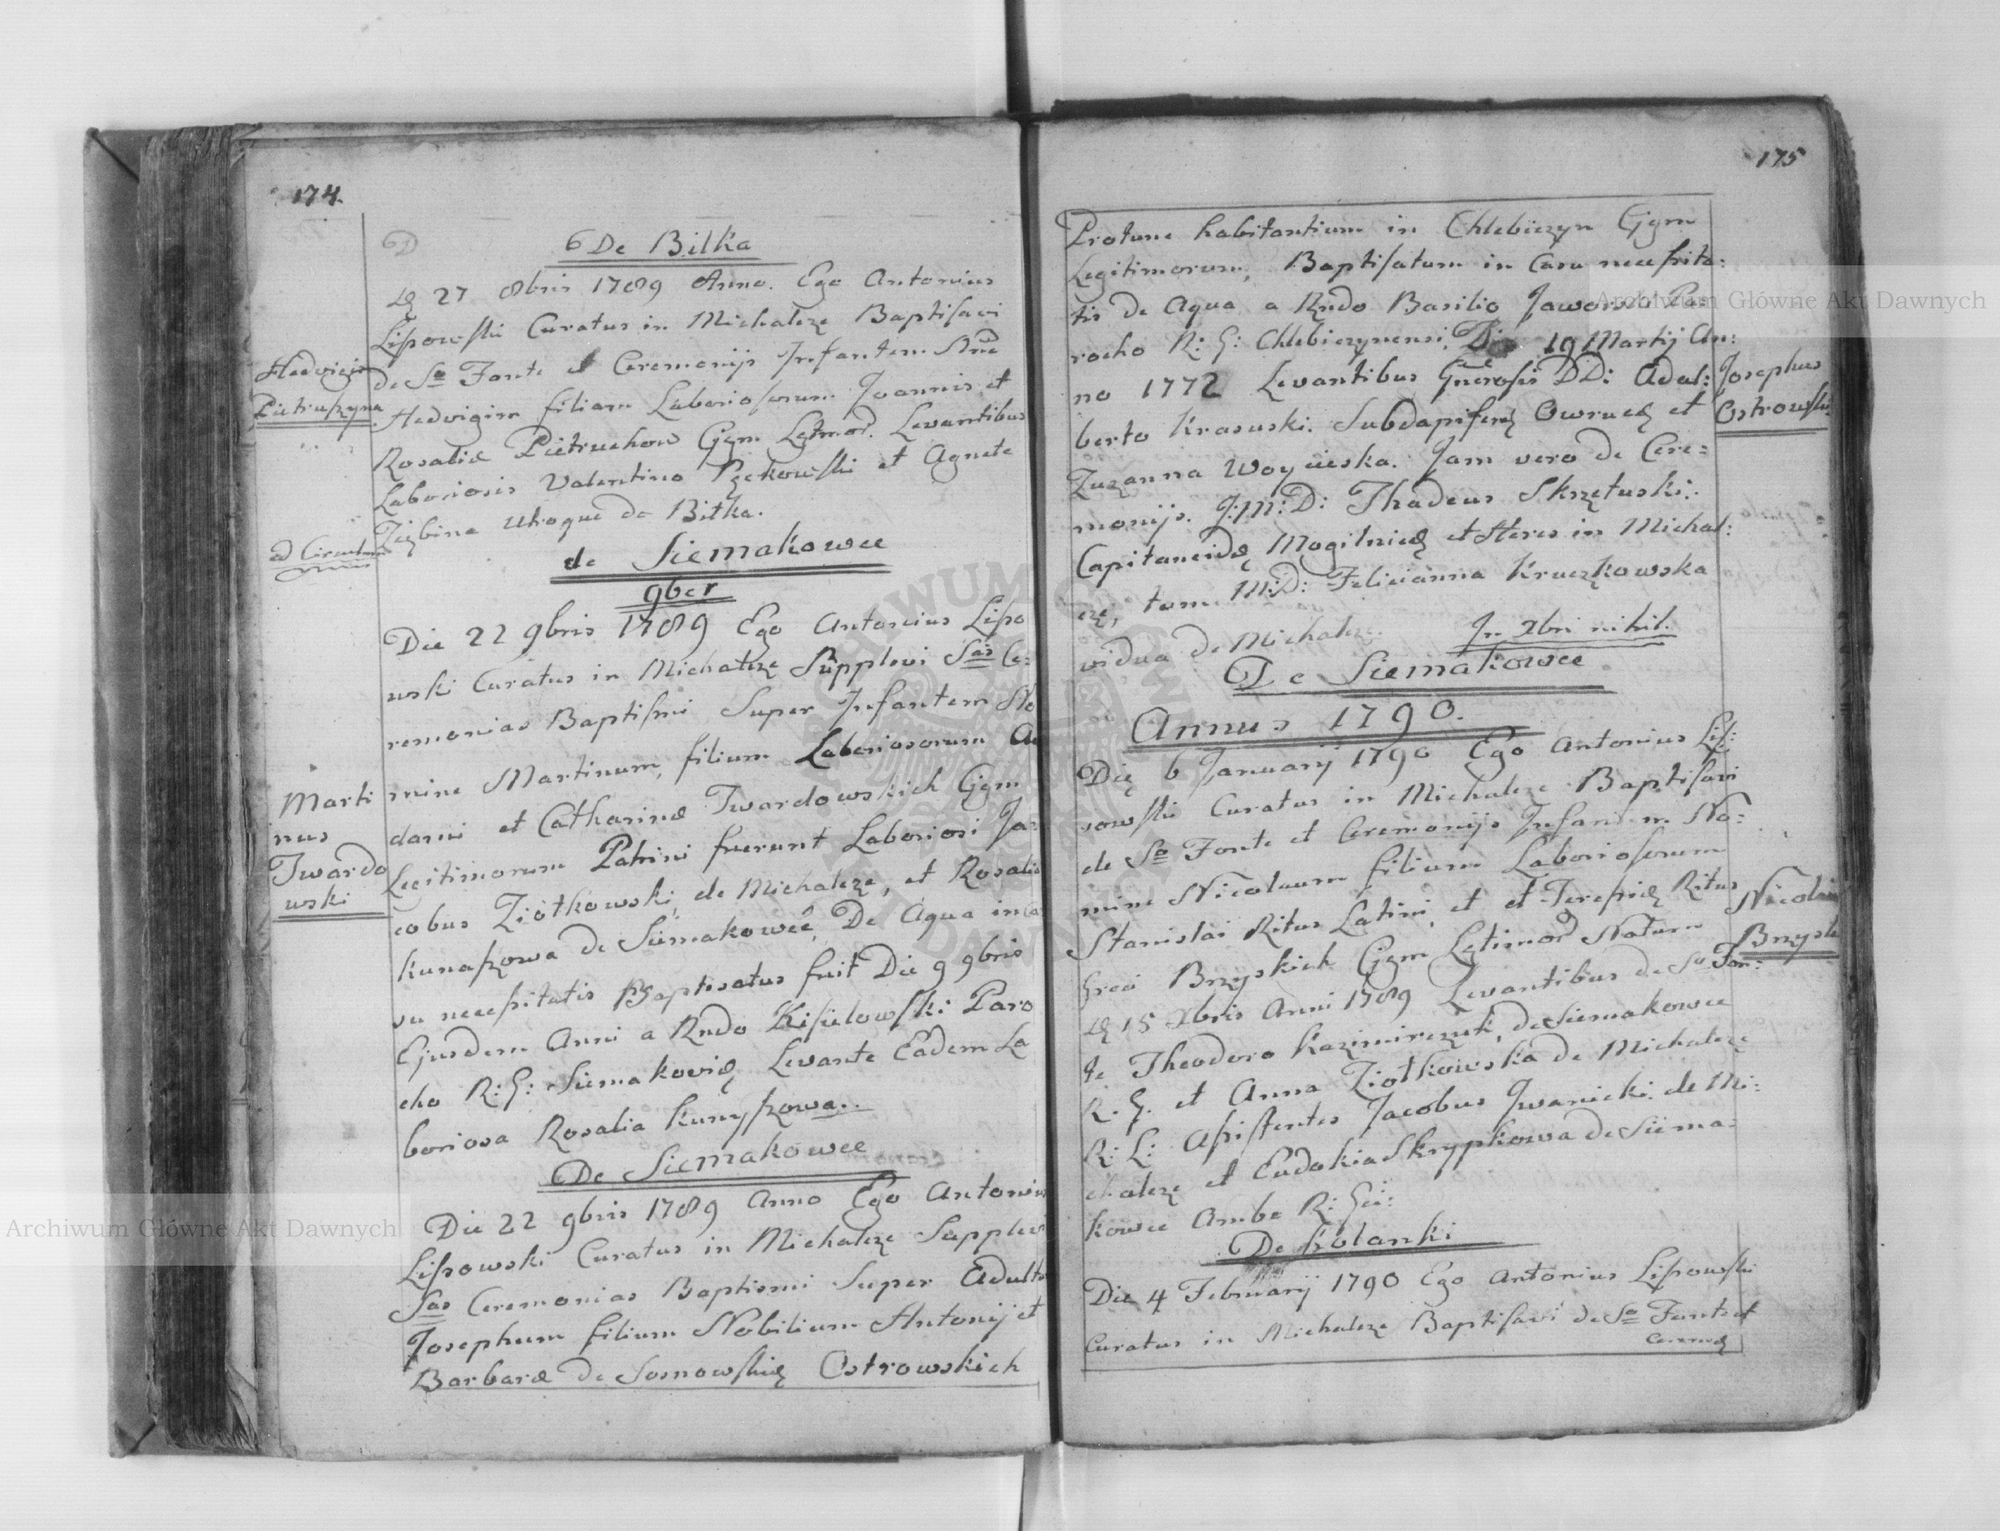 174.
De Bilka
27 8bris 1789 Anno. Ego Antonius
Lipowski Curatus in Michalcze Baptisavi
de So Fonte et Ceremonijs Infantem Nne
Hedvigis
Pietruszyna
Hedvigim filiam Laboriosorum Joannis et
Rosaliæ Pietruchow Cjgm Lgtmor. Levantibus
Laboriosis Valentino et Agnete
Utroque de Bilka.
de Siemakowce
9ber
Die 22 9bris 1789 Ego Antonius Lipo
wski Curatus in Michalcze Supplevi Sas Ce:
remonias Baptismi Super Infantem No
mine Martinum, filium Laboriosorum A
Marti
nus
Twardo
wski
dami et Catharinæ Twardowskich Cjgm
Legitimorum Patrini fuerunt Laboriosi Ja:
cobus Ziółkowski, de Michalcze, et Rosalia
de Siemakowce, De Aqua in Ca
su necessitatis Baptisatus fuit Die 9 9bris
Ejusdem Anni a Rndo Kisielowski Paro
cho R: G: Siemakovię Levante Eadem La
boriosa Rosalia
De Siemakowce
Die 22 9bris 1789 Anno Ego Antonius
Lipowski Curatus in Michalcze Supplevi
Sas Ceremonias Baptismi Super Adulto
Josephum filium Nobilium Antonij et
Barbaræ de Sosnowskię Ostrowskich
175
Protunc habitantium in Chlebiczyn Cjgm
Legitimorum, Baptisatum in Casu necessita:
tis de Aqua a Rndo Basilio Jaworski Pa:
rocho R: G: Chlebiczynensi, Die 19 Martij An:
no 1772 Levantibus Gnerosis DD: Adal:
Josephus
Ostrowski
berto Krasuski. Subdapiferę Owrucę et
Zuzanna Woycicska. Jam vero de Cere=
monijs. J:M:D: Thadeus Skrzetuski.
Capitaneidę Mogilnicę et Heres in Michal:
czę, tum M:D: Felicianna Kruczkowska
vidua de Michalcze. In Xbri nihil.
De Siemakowce
Annus 1790.
Die 6 Januarij 1790 Ego Antonius Lip:
owski Curatus in Michalcze Baptisavi
de So Fonte et Ceremonijs Infantem No:
mine Nicolaum filium Laboriosorum
Stanislai Ritus Latini, et et Teresiæ Ritus
Nicolaus
Græci Brzyskich Cjgm Lgtimor Natum
15 Xbris Anni 1789 Levantibus de So Fon:
te Theodoro de Siemakowce
R. G. et Anna Ziółkowska de Michalcze
R: L: Assistentes Jacobus Iwanicki de Mi:
chalcze et Eudokia Skrypkowa de Siema:
kowce Ambo R: Gci:
De Kolanki
Die 4 Februarij 1790 Ego Antonius Lipowski
Curatus in Michalcze Baptisavi de So Fonte et
Archiwum Główne Akt Dawnych
Archiwum Główne Akt Dawnych